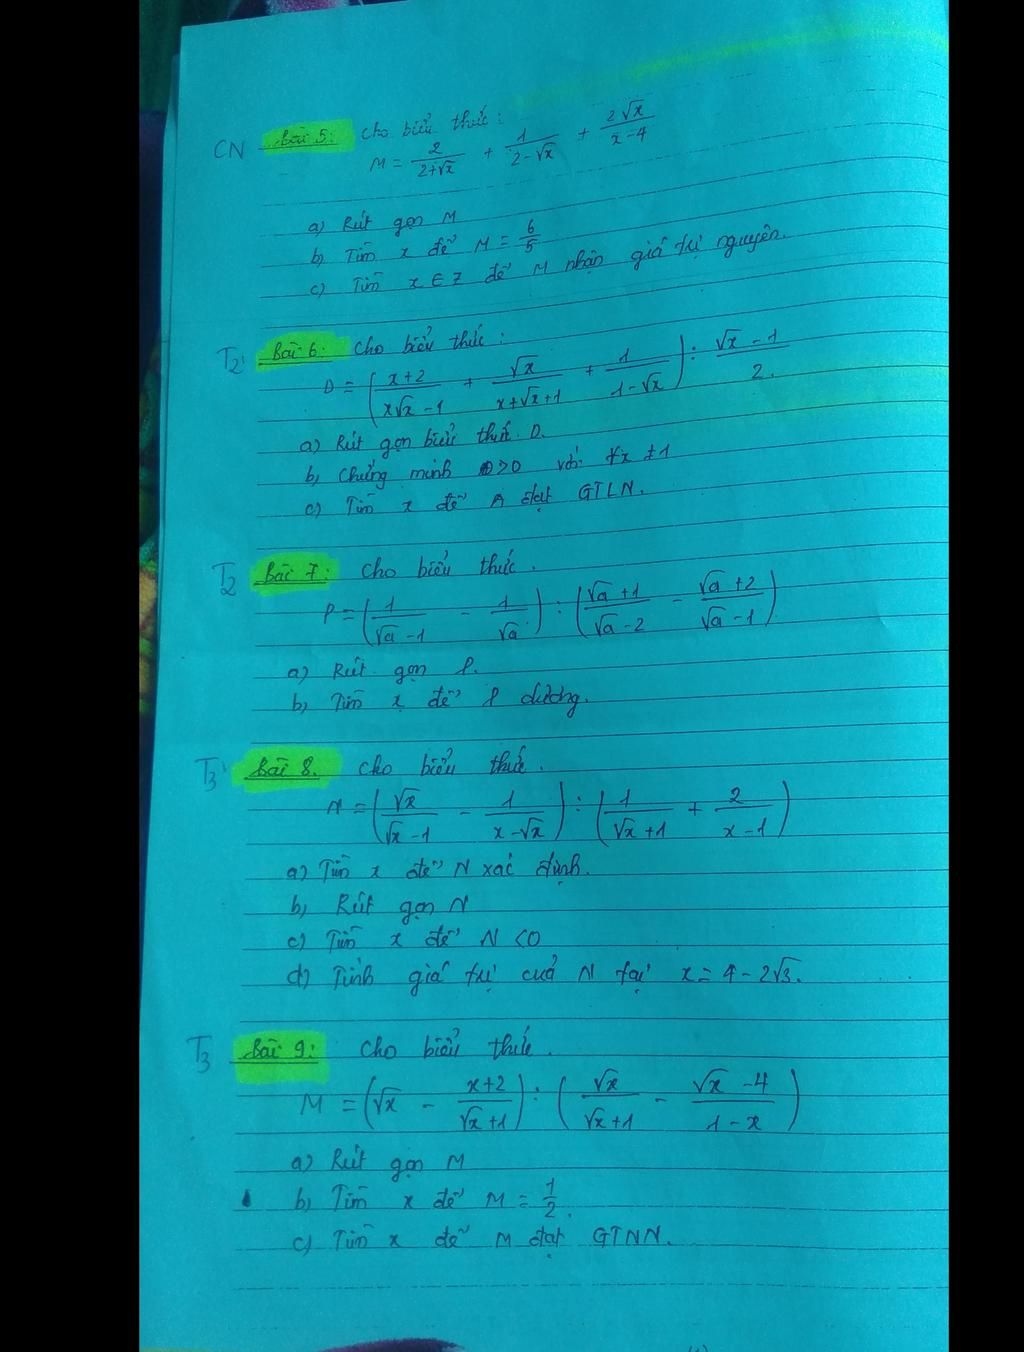 CN Bài 5: Cho biểu thức:
M = 2/(2+√x) + 1/(2-√x) + 2√x/(x-4)
a) Rút gọn M
b) Tìm x để M = 6/5
c) Tìm x ∈ Z để M nhận giá trị nguyên.
T2' Bài 6: Cho biểu thức:
D = ((x+2)/(x√x-1) + √x/(x+√x+1) + 1/(1-√x)) : (√x-1)/2.
a) Rút gọn biểu thức D.
b) Chứng minh D>0 với ∀x ≠1
c) Tìm x để A đạt GTLN.
T2 Bài 7: Cho biểu thức.
P = (1/(√a-1) - 1/√a) : ((√a+1)/(√a-2) - (√a+2)/(√a-1))
a) Rút gọn P.
b) Tìm x để P dương.
T3' Bài 8. Cho biểu thức.
N = (√x/(√x-1) - 1/(x-√x)) : (1/(√x+1) + 2/(x-1))
a) Tìm x để N xác định.
b) Rút gọn N
c) Tìm x để N <0
d) Tính giá trị của N tại x = 4-2√3.
T3 Bài 9: Cho biểu thức.
M = (√x - (x+2)/(√x+1)) : (√x/(√x+1) - (√x-4)/(1-x))
a) Rút gọn M
b) Tìm x để M = 1/2.
c) Tìm x để M đạt GTNN.